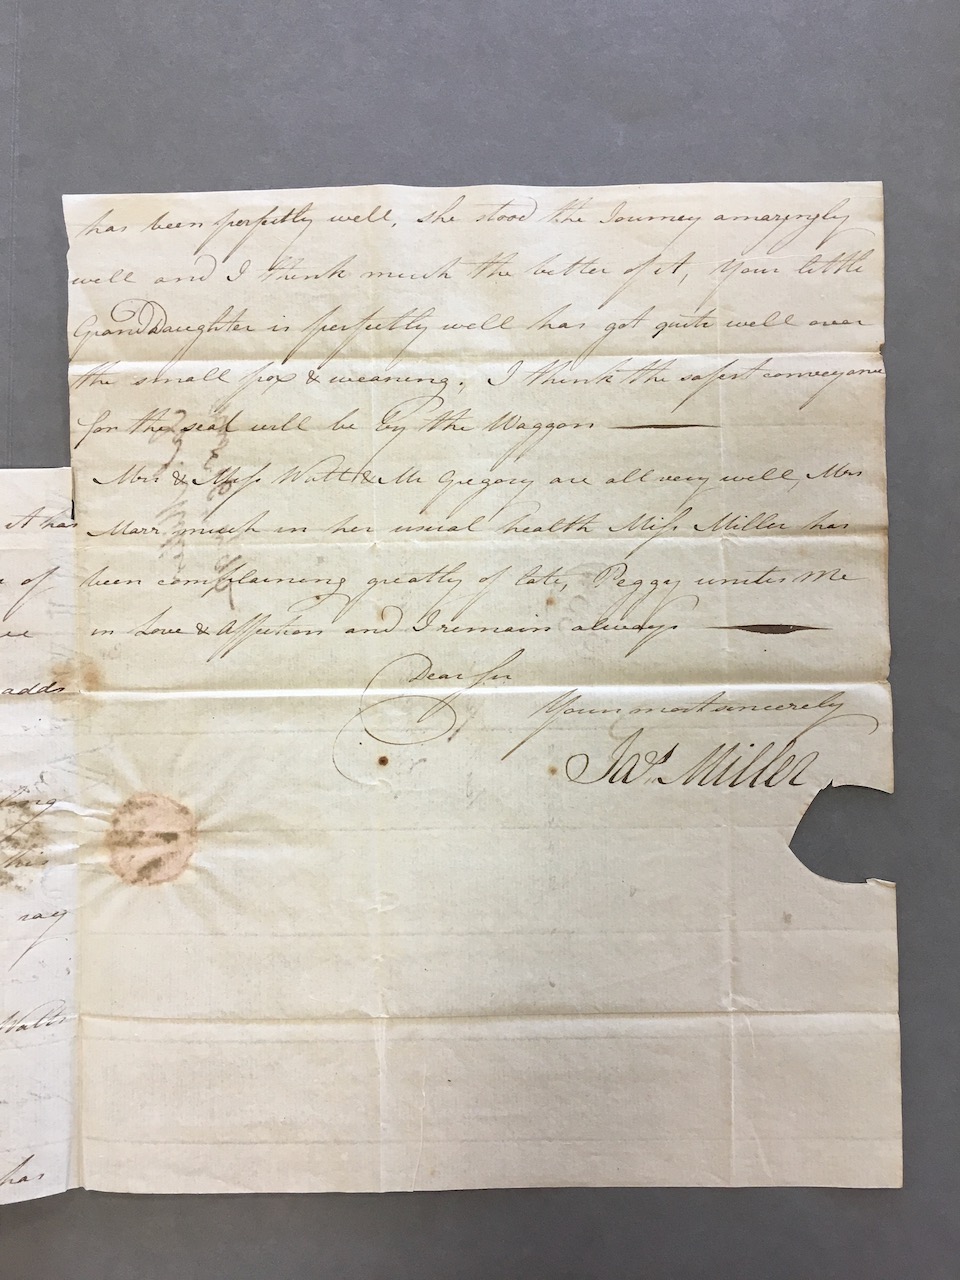 has been perfectly well, she stood the Journey amazingly
well and I think much the better of it, Your little
GrandDaughter is perfectly well has got quite well over
the small pox & weaning. I think the safest conveyance
for the seal will be By the Waggon
Mrs & Miss Watt & Mr Gregory are all very well, Mrs
Marr much in her usual health Miss Miller has
been complaining greatly of late, Peggy unites me
in Love & Affection and I remain always
Dear Sir
Your most sincerely
Jas. Miller
it has
of
adds
his
Watts
has